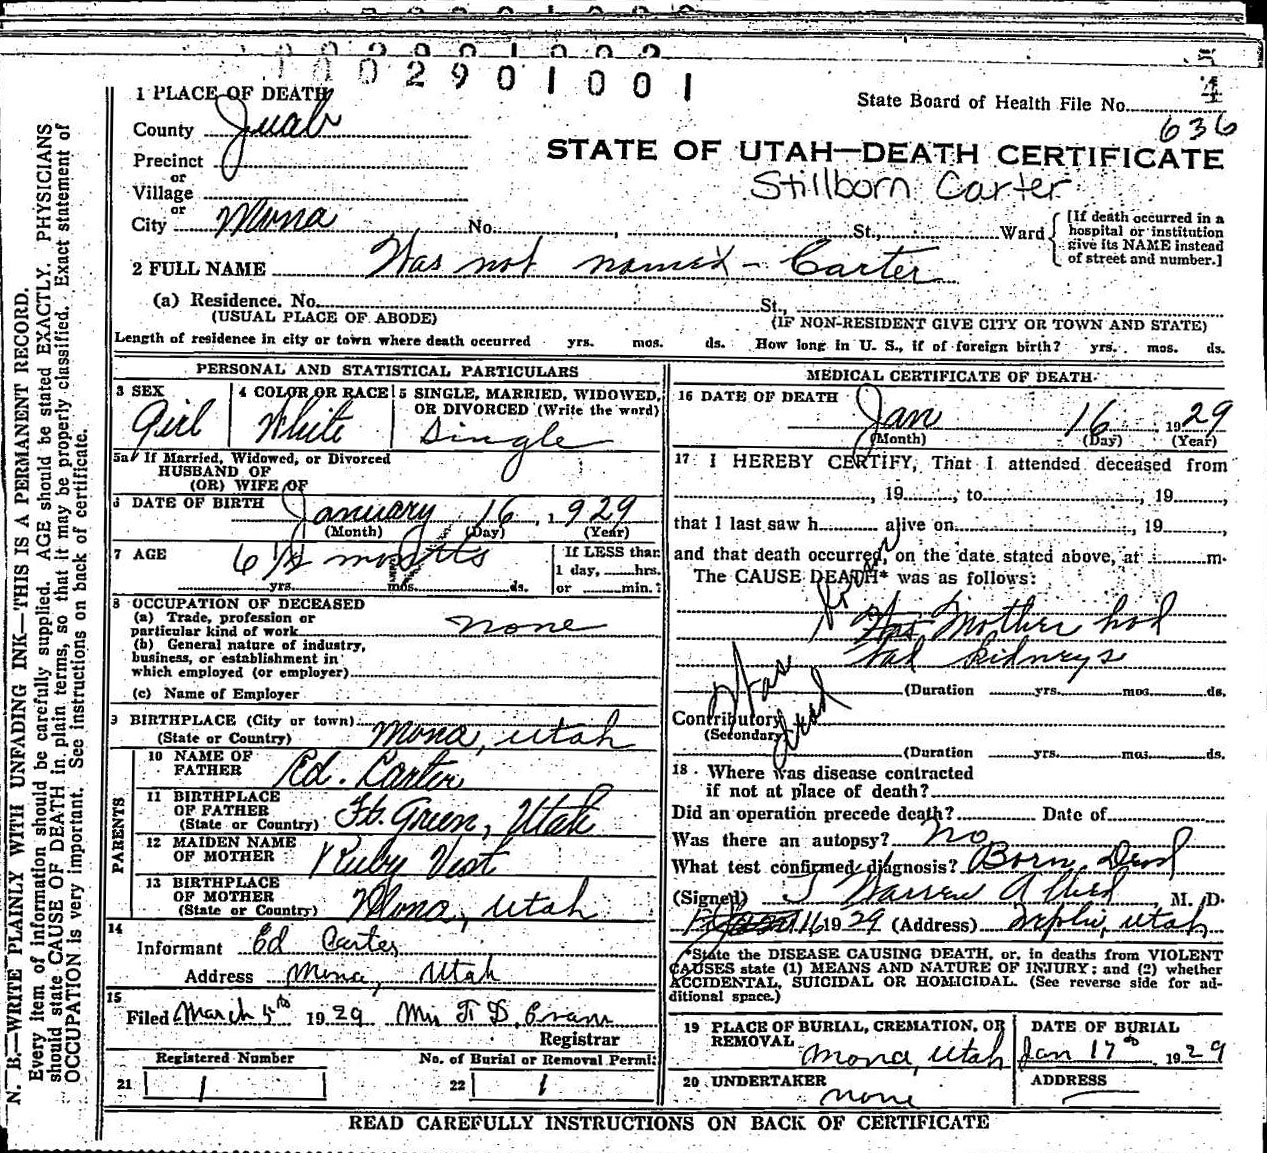 1002901001
4
1 PLACE OF DEATH
State Board of Health File No.
County Juab
636
Precinct
STATE OF UTAH—DEATH CERTIFICATE
or
Village
Stillborn Carter
or
City Mona No. , St., Ward
[If death occurred in a
hospital or institution
give its NAME instead
of street and number.]
2 FULL NAME Was not named - Carter
(a) Residence. No. St.,
(USUAL PLACE OF ABODE) (IF NON-RESIDENT GIVE CITY OR TOWN AND STATE)
Length of residence in city or town where death occurred yrs. mos. ds. How long in U. S., if of foreign birth? yrs. mos. ds.
PERSONAL AND STATISTICAL PARTICULARS
3 SEX
Girl
4 COLOR OR RACE
White
5 SINGLE, MARRIED, WIDOWED,
OR DIVORCED (Write the word)
Single
5a If Married, Widowed, or Divorced
HUSBAND OF
(OR) WIFE OF
6 DATE OF BIRTH January 16, 1929
(Month) (Day) (Year)
7 AGE 6 1/2 months
yrs. mos. ds.
If LESS than
1 day, hrs.
or min.:
8 OCCUPATION OF DECEASED
(a) Trade, profession or
particular kind of work none
(b) General nature of industry,
business, or establishment in
which employed (or employer)
(c) Name of Employer
9 BIRTHPLACE (City or town) Mona, Utah
(State or Country)
PARENTS
10 NAME OF
FATHER Ed. Carter
11 BIRTHPLACE
OF FATHER
(State or Country) Ft. Green, Utah
12 MAIDEN NAME
OF MOTHER Ruby Vest
13 BIRTHPLACE
OF MOTHER
(State or Country) Mona, Utah
14
Informant Ed Carter
Address Mona, Utah
15
Filed March 5th 1929 Mrs. F. D. Evans
Registrar
Registered Number No. of Burial or Removal Permit
21 1 22 1
MEDICAL CERTIFICATE OF DEATH
16 DATE OF DEATH
Jan 16 1929
(Month) (Day) (Year)
17 I HEREBY CERTIFY, That I attended deceased from
, 19 , to , 19 ,
that I last saw h alive on , 19
and that death occurred, on the date stated above, at m.
The CAUSE DEATH* was as follows:
Mother had
bad kidneys
Was
dead
(Duration yrs. mos. ds.
Contributory
(Secondary)
(Duration yrs. mos. ds.
18 Where was disease contracted
if not at place of death?
Did an operation precede death? Date of
Was there an autopsy? no
What test confirmed diagnosis? Born Dead
(Signed) T Warren Allred M. D.
Jan 16 1929 (Address) Nephi, Utah
*State the DISEASE CAUSING DEATH, or, in deaths from VIOLENT
CAUSES state (1) MEANS AND NATURE OF INJURY; and (2) whether
ACCIDENTAL, SUICIDAL OR HOMICIDAL. (See reverse side for ad-
ditional space.)
19 PLACE OF BURIAL, CREMATION, OR
REMOVAL
Mona, Utah
DATE OF BURIAL
Jan 17th 1929
20 UNDERTAKER
none
ADDRESS
READ CAREFULLY INSTRUCTIONS ON BACK OF CERTIFICATE
N. B.—WRITE PLAINLY WITH UNFADING INK—THIS IS A PERMANENT RECORD.
Every item of information should be carefully supplied. AGE should be stated EXACTLY. PHYSICIANS
should state CAUSE OF DEATH in plain terms, so that it may be properly classified. Exact statement of
OCCUPATION is very important. See instructions on back of certificate.